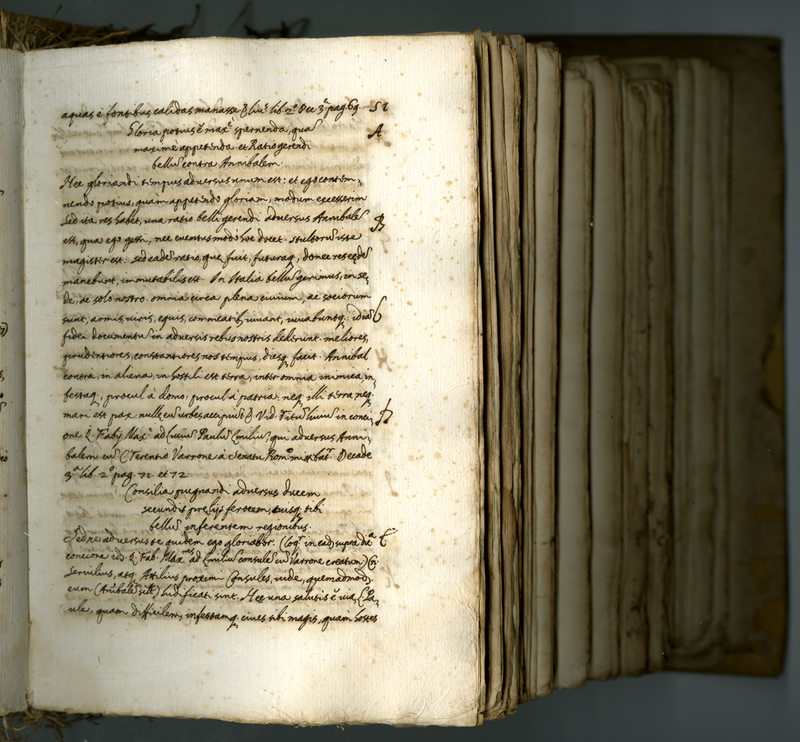 aquas é fontibus calidas manasse § liu: lib 2.º Dec 3.ª pag 69. 51
Gloria potius é max.e spernenda, qua A
maxime appetenda et Ratio gerendi
bellu contra Annibalem.
Nec gloriandi tempus adversus unum est: et ego contem,
nendo potius, quam appetendo gloriam, modum excesserim
Sed ita res habet, una ratio belli gerendi adversus Annibale B
est, qua ego gessi, nec eventus modo hoc docet. stultoru iste
magister est: sed eade ratio, que fuit, futuraq, donec res eede
manebunt, immutabilis est. In Italia bellu gerimus, in se,
de, ac solo nostro. omnia circa plena civium, ac sociorum
sunt, armis, viris, equis, comeatib, iuvant, iuvabuntq: idia C
fidei documentu in adversis rebus nostris dederunt. meliores,
prudentiores, constantiores nos tempus, diesq. facit. Annibal
contra, in aliena, in hostili est terra, inter omnia inimica, in,
festaq, procul à domo, procul à patria. neq. illi terra, neq.
mari est pax. nulle eu urbes accipiut & Vid. Titu Liuiu in conci, D
one Q. Fabij Max.i ad Luciu Paulu Emiliu, qui adversus Anni,
balem cu C. Terentio Varrone à Senatu Rom.o mittibat.r Decade
3.ª lib. 2.º pag. 71 et 72
Consilia pugnandi adversus ducem
secundis prelijs ferocem, eusq. tibi
bellu inferentem regionibus.
Sedne adversus te quidem ego gloriabor. (loq.r in ead supra di.ª E
concione id Q. Fab. Max.mus ad Emiliu consule cu Varrone creatum) Cn.
Servilius, atq. Attilius proximi Consules, vide, quemadmod,
eum (Anibale scil.t) ludificati sint. Hec una salutis é via, L. Pa,
ule, quam difficilem, infestamq. cives tibi magis, quam hostes